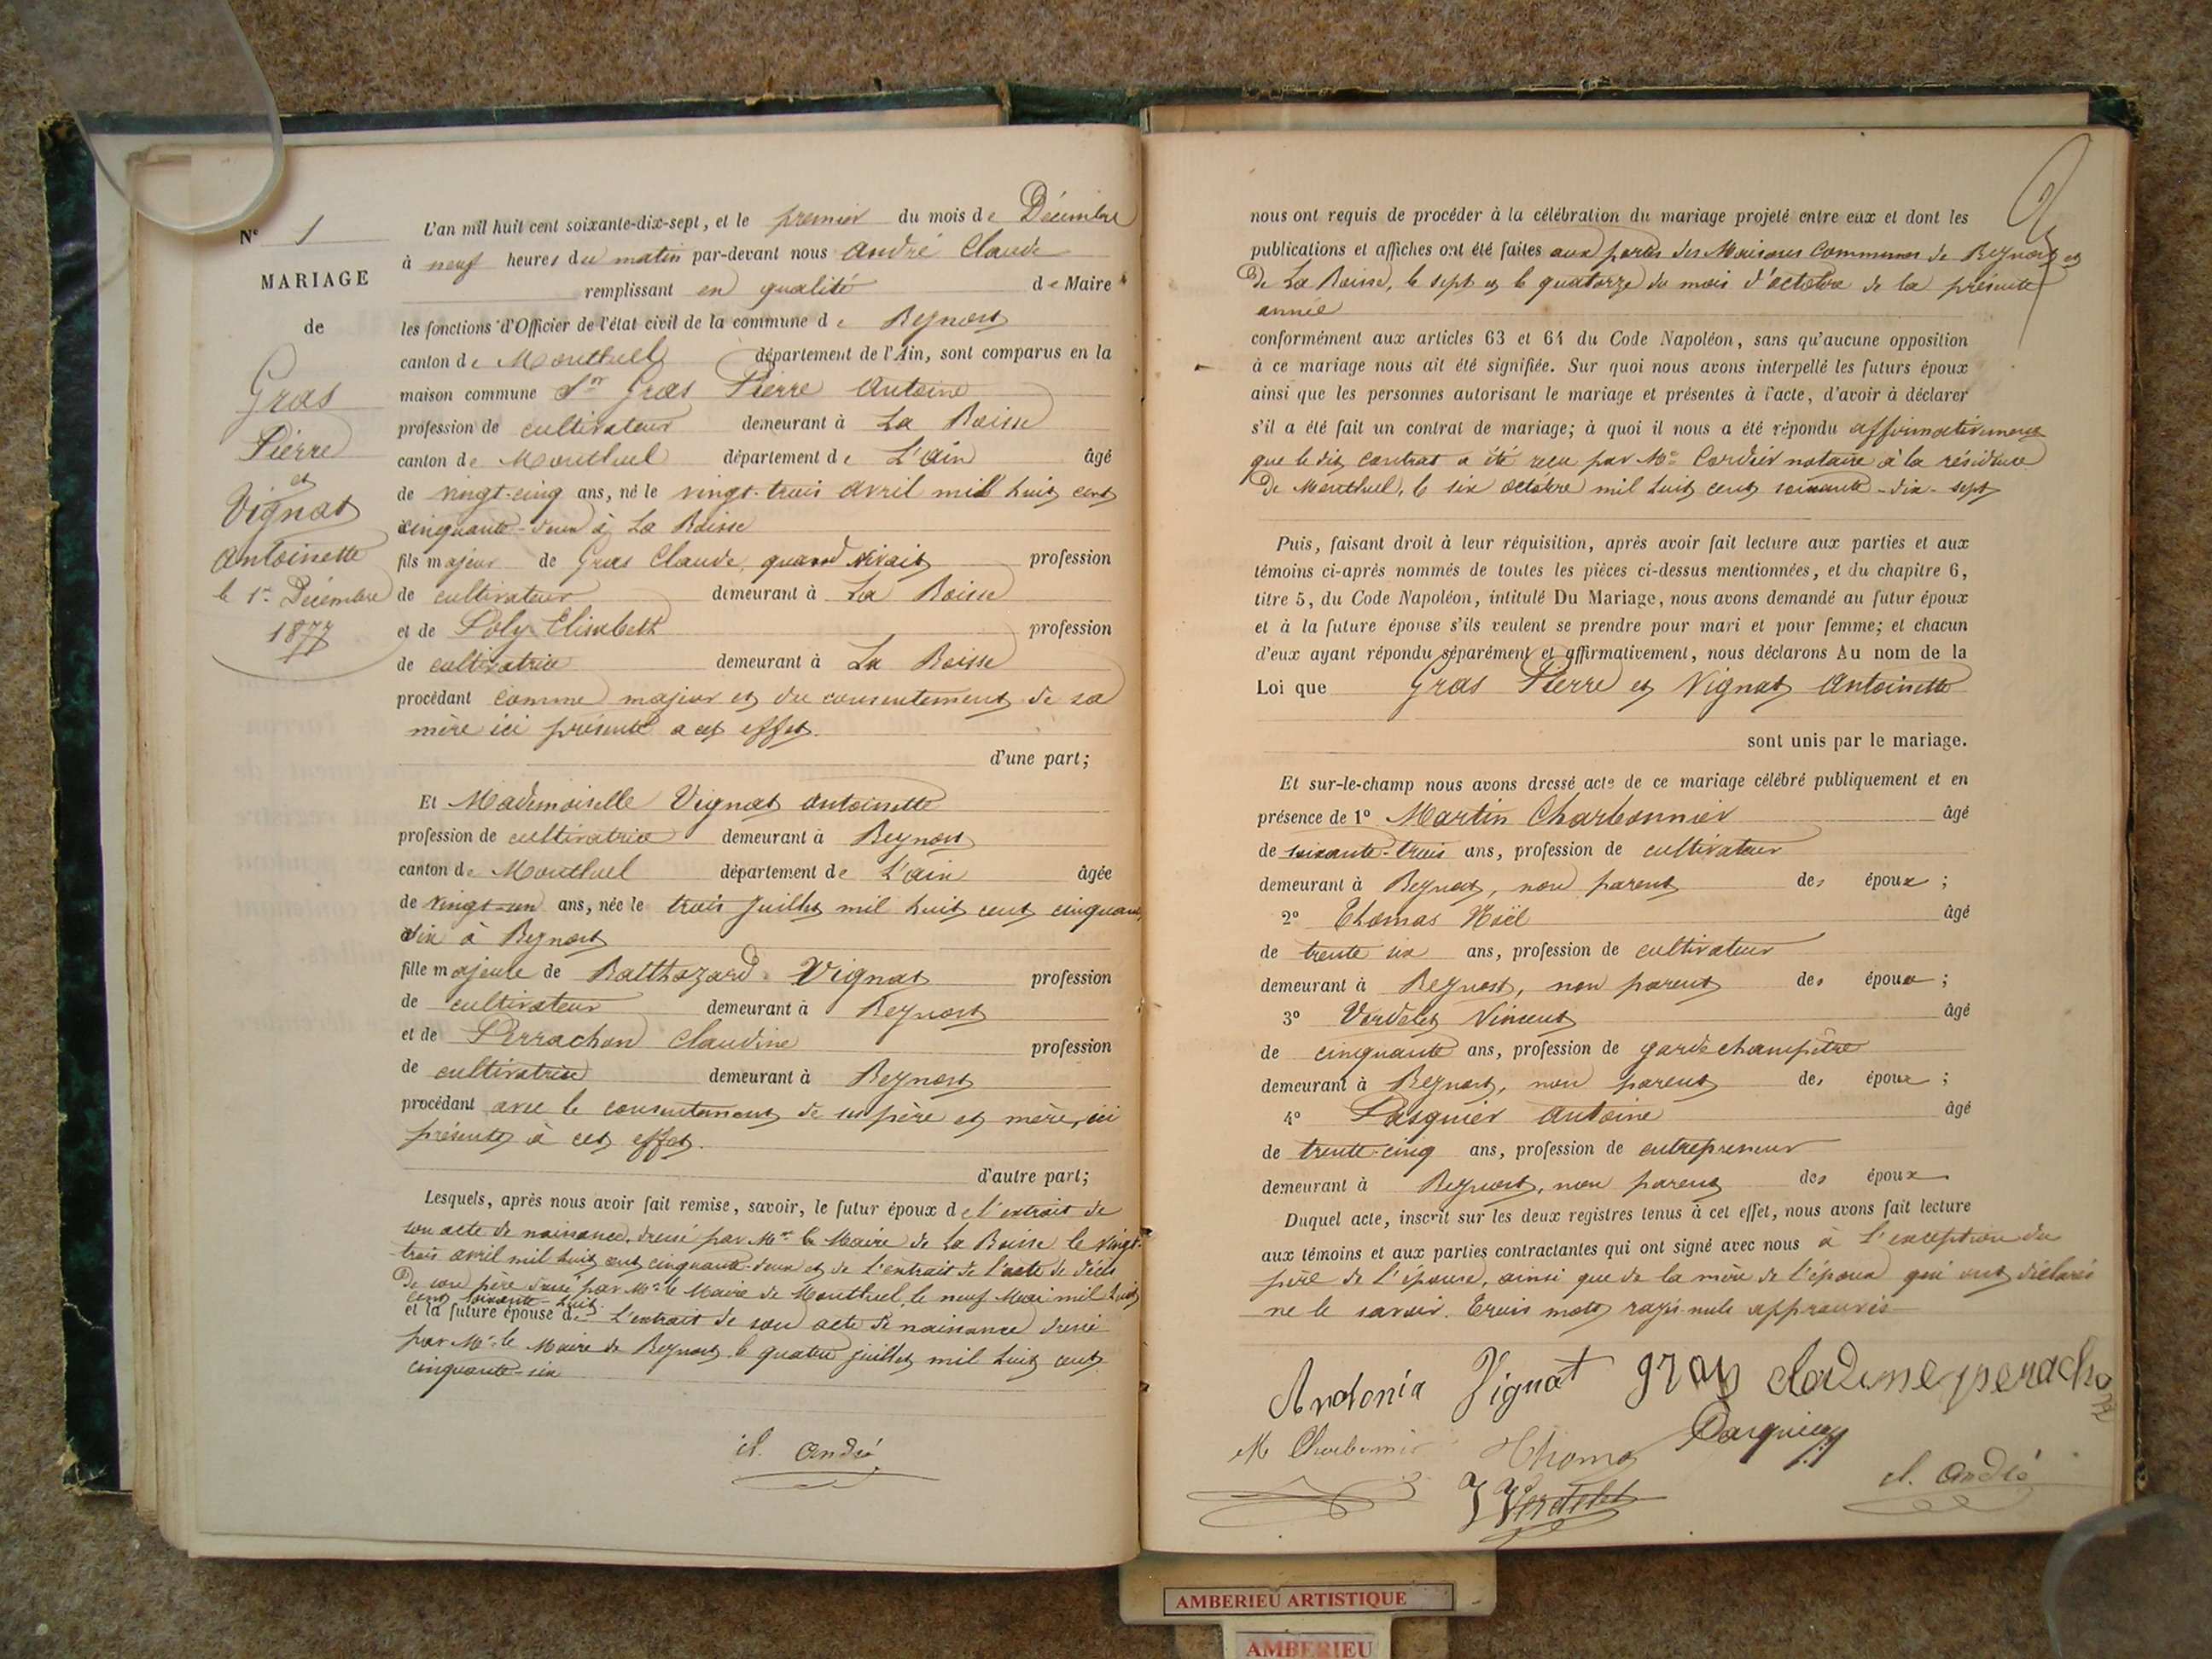 N° 1
MARIAGE
de
Gras
Pierre
et
Vignat
Antoinette
le 1er Décembre
1877
L'an mil huit cent soixante-dix-sept, et le premier du mois de Décembre
à neuf heures du matin par-devant nous André Claude
remplissant en qualité de Maire
les fonctions d'Officier de l'état civil de la commune de Beynost
canton de Montluel département de l'Ain, sont comparus en la
maison commune Sr Gras Pierre Antoine
profession de cultivateur demeurant à La Boisse
canton de Montluel département de L'Ain âgé
de vingt-cinq ans, né le vingt-trois avril mil huit cent
cinquante-deux à La Boisse
fils majeur de Gras Claude, quand vivait profession
de cultivateur demeurant à La Boisse
et de Poly Elisabeth profession
de cultivatrice demeurant à La Boisse
procédant comme majeur et du consentement de sa
mère ici présente a cet effet.
d'une part;
Et Mademoiselle Vignat Antoinette
profession de cultivatrice demeurant à Beynost
canton de Montluel département de L'ain âgée
de vingt-un ans, née le trois Juillet mil huit cent cinquante
six à Beynost
fille majeure de Balthazard Vignat profession
de cultivateur demeurant à Beynost
et de Perrachon Claudine profession
de cultivatrice demeurant à Beynost
procédant avec le consentement de ses père et mère, ici
présents à cet effet.
d'autre part;
Lesquels, après nous avoir fait remise, savoir, le futur époux de l'extrait de
son acte de naissance, dressé par Mr le Maire de La Boisse le vingt-
trois avril mil huit cent cinquante-deux et de l'extrait de l'acte de décès
De son père dressé par Mr le Maire de Montluel, le neuf Mai mil huit
cent soixante-huit
et la future épouse de L'extrait de son acte de naissance dressé
par Mr le Maire de Beynost le quatre juillet mil huit cent
cinquante-six
Cl. André
nous ont requis de procéder à la célébration du mariage projeté entre eux et dont les
publications et affiches ont été faites aux portes des Maisons Communes de Beynost et
De La Boisse, le sept et le quatorze du mois d'octobre de la présente
année
conformément aux articles 63 et 64 du Code Napoléon, sans qu'aucune opposition
à ce mariage nous ait été signifiée. Sur quoi nous avons interpellé les futurs époux
ainsi que les personnes autorisant le mariage et présentes à l'acte, d'avoir à déclarer
s'il a été fait un contrat de mariage; à quoi il nous a été répondu affirmativement
que le dit contrat a été reçu par Me Cordier notaire à la résidence
De Montluel, le six octobre mil huit cent soixante-dix-sept
Puis, faisant droit à leur réquisition, après avoir fait lecture aux parties et aux
témoins ci-après nommés de toutes les pièces ci-dessus mentionnées, et du chapitre 6,
titre 5, du Code Napoléon, intitulé Du Mariage, nous avons demandé au futur époux
et à la future épouse s'ils veulent se prendre pour mari et pour femme; et chacun
d'eux ayant répondu séparément et affirmativement, nous déclarons Au nom de la
Loi que Gras Pierre et Vignat Antoinette
sont unis par le mariage.
Et sur-le-champ nous avons dressé acte de ce mariage célébré publiquement et en
présence de 1° Martin Charbonnier âgé
de soixante-trois ans, profession de cultivateur
demeurant à Beynost, non parent des époux ;
2° Thomas Noël âgé
de trente six ans, profession de cultivateur
demeurant à Beynost, non parent des époux ;
3° Verdelet Vincent âgé
de cinquante ans, profession de garde champêtre
demeurant à Beynost, non parent des époux ;
4° Pasquier Antoine âgé
de trente-cinq ans, profession de entrepreneur
demeurant à Beynost, non parent des époux
Duquel acte, inscrit sur les deux registres tenus à cet effet, nous avons fait lecture
aux témoins et aux parties contractantes qui ont signé avec nous à l'exception du
père de l'épouse, ainsi que de la mère de l'époux qui ont déclaré
ne le savoir. Trois mots rayés nuls approuvés
Antonia Vignat gras cladine perachon
M Charbonnier Thoma Pasquier
V Verdelet Cl. André
AMBERIEU ARTISTIQUE
AMBERIEU